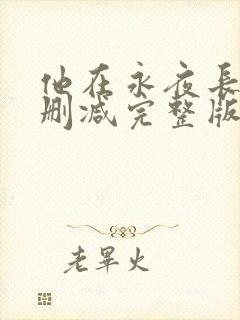 他在永夜長
删减完整版
老畢火